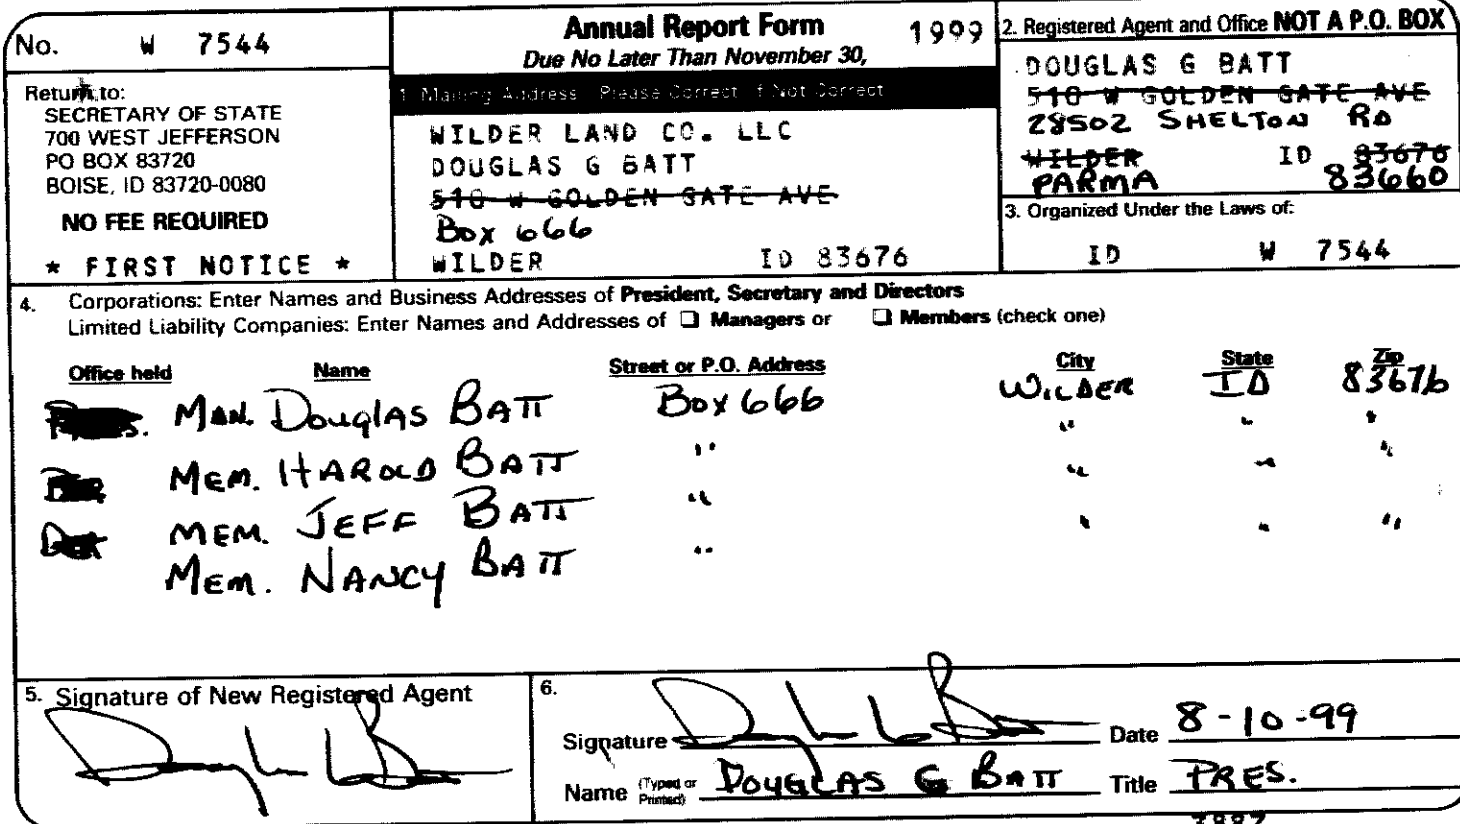 No. W 7544
Return to:
SECRETARY OF STATE
700 WEST JEFFERSON
PO BOX 83720
BOISE, ID 83720-0080
NO FEE REQUIRED
* FIRST NOTICE *
Annual Report Form 1999
Due No Later Than November 30,
1. Mailing Address Please Correct If Not Correct
WILDER LAND CO. LLC
DOUGLAS G BATT
510 W GOLDEN GATE AVE
Box 666
WILDER ID 83676
2. Registered Agent and Office NOT A P.O. BOX
DOUGLAS G BATT
510 W GOLDEN GATE AVE
28502 SHELTON RD
WILDER ID 83676
PARMA 83660
3. Organized Under the Laws of:
ID W 7544
4. Corporations: Enter Names and Business Addresses of President, Secretary and Directors
Limited Liability Companies: Enter Names and Addresses of ❑ Managers or ❑ Members (check one)
Office held Name Street or P.O. Address City State Zip
MAN. Douglas BATT Box 666 WILDER ID 83676
MEM. HAROLD BATT " " " "
MEM. JEFF BATT " " " "
MEM. NANCY BATT " " " "
5. Signature of New Registered Agent
6.
Signature Date 8-10-99
Name (Typed or Printed) DOUGLAS G BATT Title PRES.